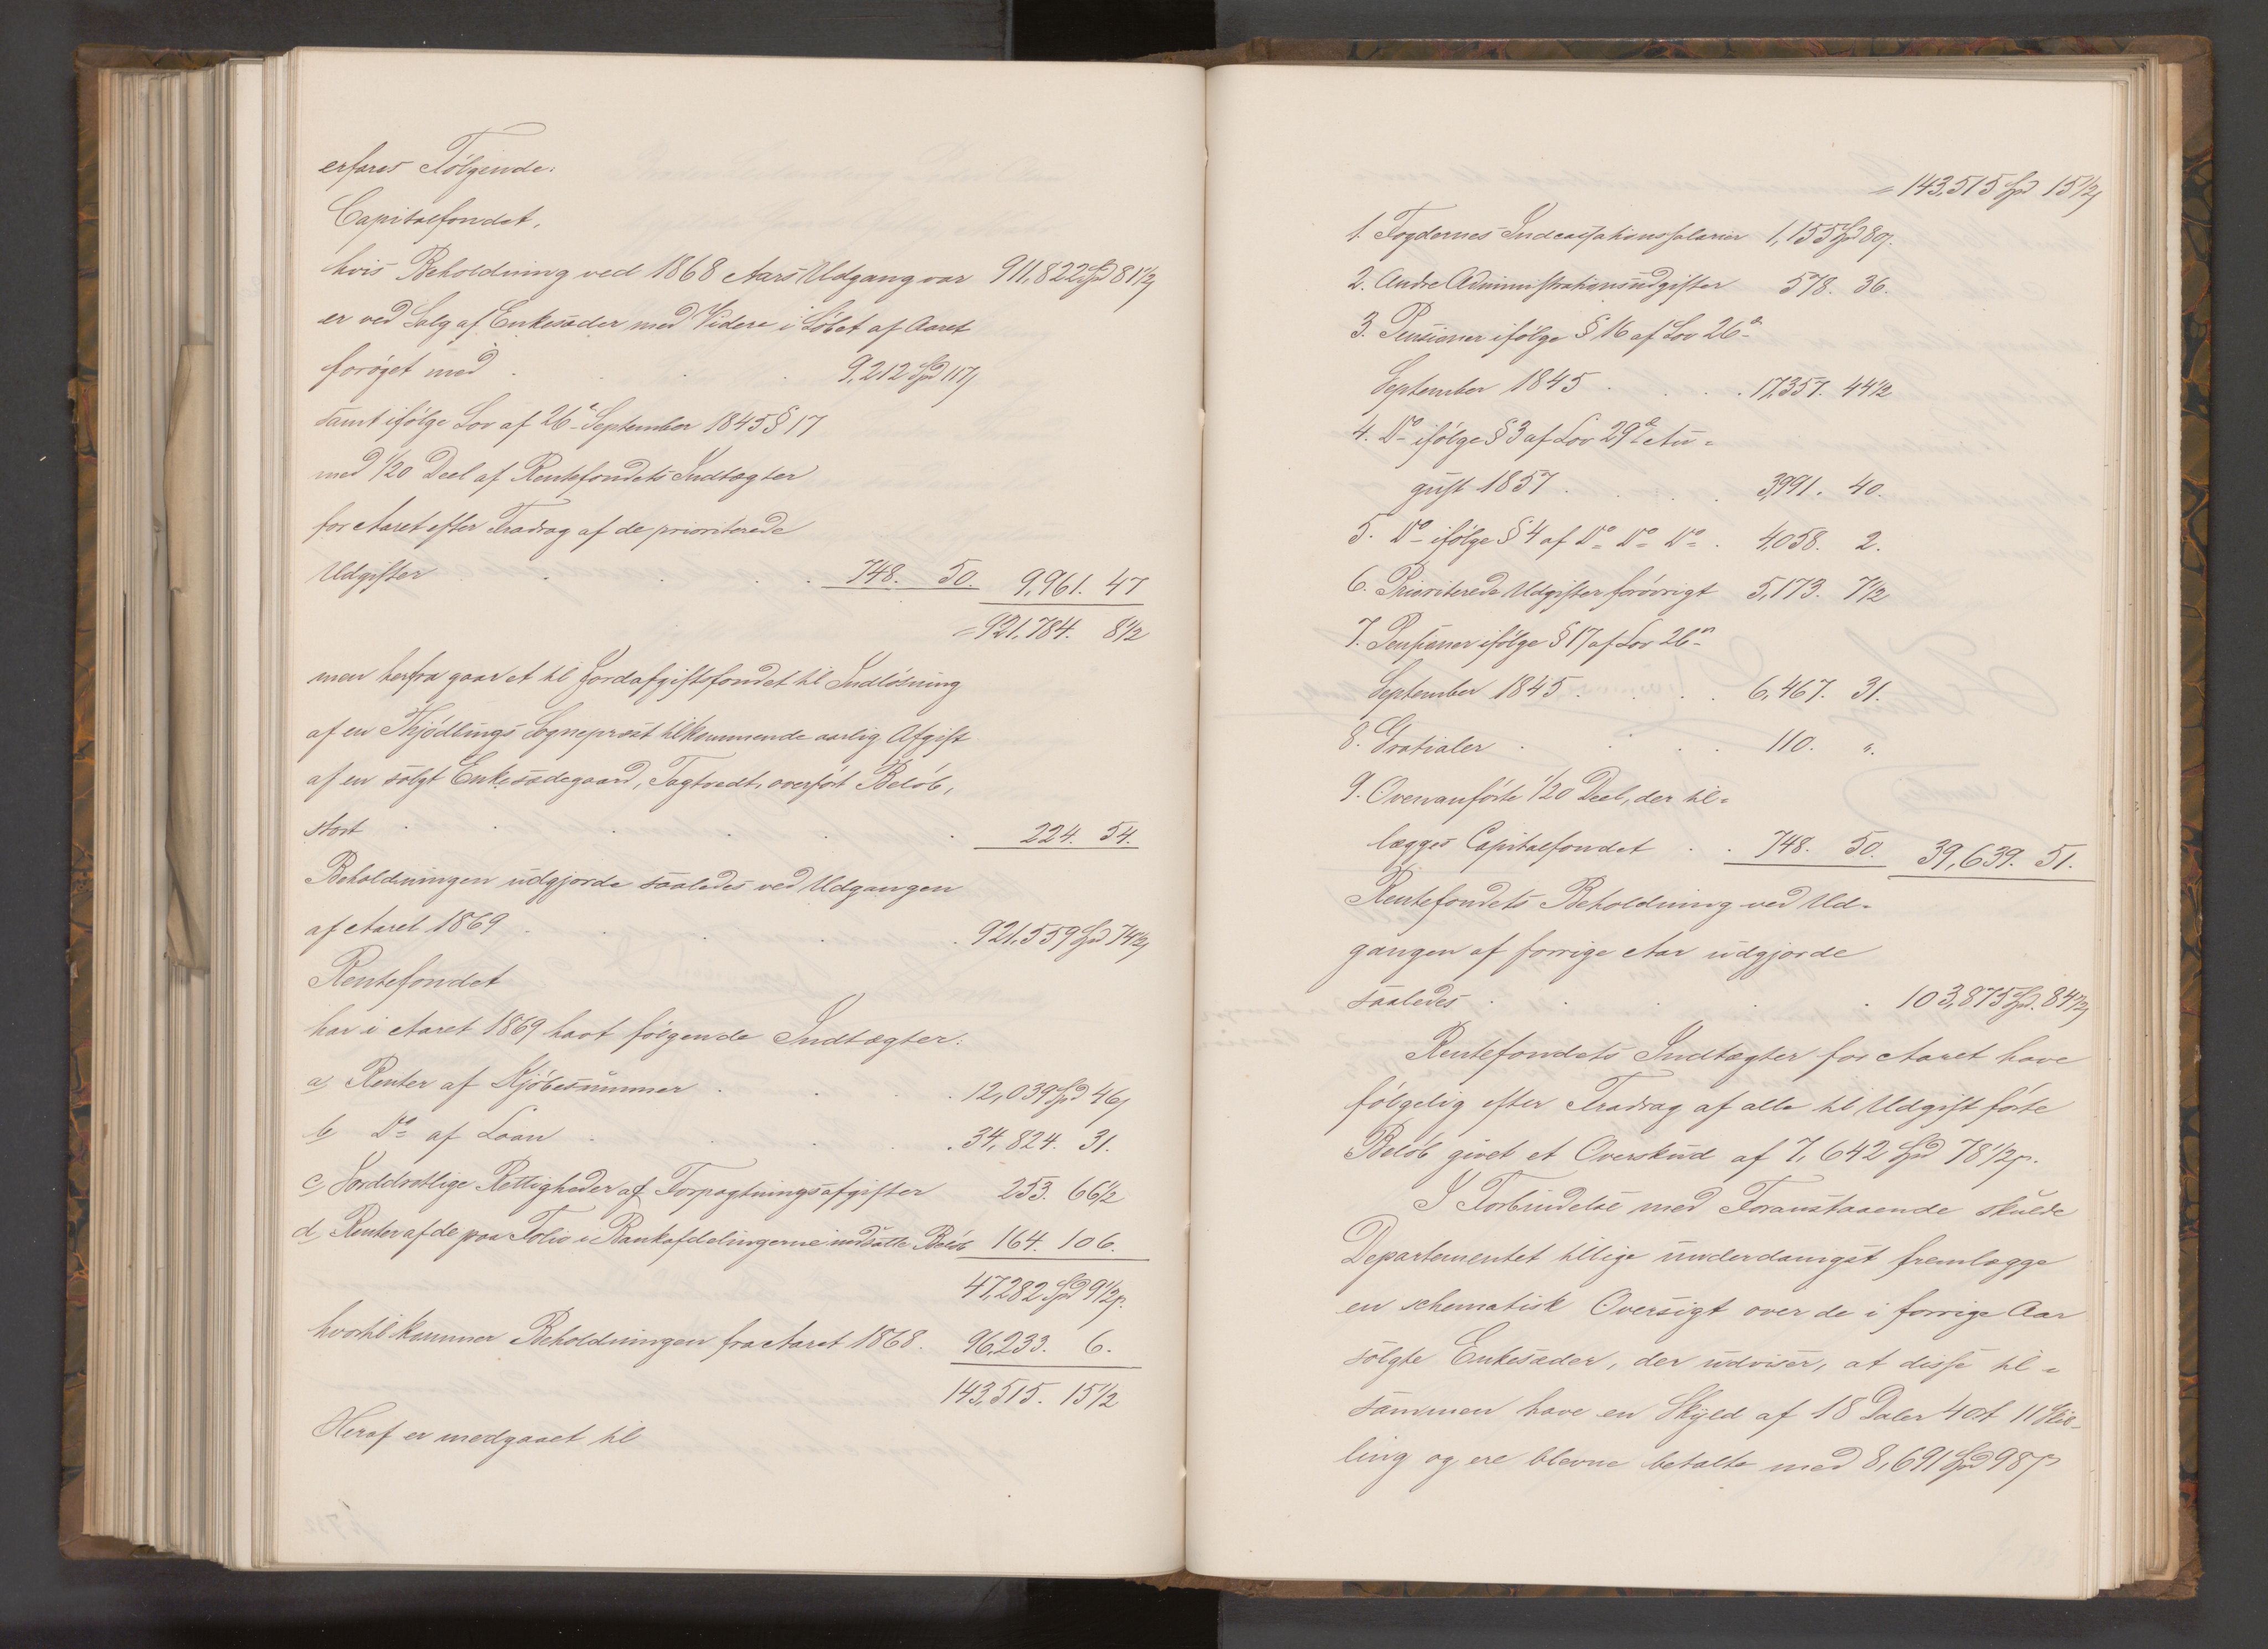 erfares Følgende:
Capitalfondet,
hvis Beholdning ved 1868 Aars Udgang var 911,822 Spd 81½ ß
er ved Salg af Enkesæder med Videre i Løbet af Aaret
forøget med . . . 9,212 Spd 117 ß
samt ifølge Lov af 26de September 1845 § 17
med 1/20 Deel af Rentefondets Indtægter
for Aaret efter Fradrag af de prioriterede
Udgifter . . . . 748. 50. 9,961. 47
= 921,784. 8½
men herfra gaar et til Jordafgiftsfondet til Indløsning
af en Thjødlings Sogneprest tilkommende aarlig Afgift
af en solgt Enkesædegaard, Fagtvedt, overført Beløb,
stort . . . . . . 224. 54.
Beholdningen udgjorde saaledes ved Udgangen
af Aaret 1869 . . . . 921,559 Spd 74½ ß
Rentefondet
har i Aaret 1869 havt følgende Indtægter:
a) Renter af Kjøbesummer . . . 12,039 Spd 46 ß
b) Do af Laan . . . . 34,824. 31.
c) Jorddrotlige Rettigheder af Forpagtningsafgifter 253. 66½
d) Renter af de paa Folio i Bankafdelingerne indsatte Beløb 164. 106.
47,282 Spd 9½ ß.
hvortil kommer Beholdningen fra Aaret 1868. 96,233. 6.
143,515. 15½
Heraf er medgaaet til
= 143,515 Spd 15½ ß
1. Fogdernes Indcassationssalarier 1,155 Spd 80 ß.
2. Andre Administrationsudgifter 578. 36.
3. Pensioner ifølge § 16 af Lov 26de
September 1845 . . . 17,357. 44½
4. Do ifølge § 3 af Lov 29de Au=
gust 1857 . . . 3,991. 40.
5. Do ifølge § 4 af Do Do Do . 4,058. 2.
6. Prioriterede Udgifter forøvrigt 5,173. 7½
7. Pensioner ifølge § 17 af Lov 26de
September 1845 . . . 6,467. 31.
8. Gratialer . . . . 110. ".
9. Ovenanførte 1/20 Deel, der til=
lægges Capitalfondet . . 748. 50. 39,639. 51.
Rentefondets Beholdning ved Ud=
gangen af forrige Aar udgjorde
saaledes . . . . . 103,875 Spd. 84½ ß
Rentefondets Indtægter for Aaret have
følgelig efter Fradrag af alle til Udgift førte
Beløb givet et Overskud af 7,642 Spd 78½ ß.
I Forbindelse med Foranstaaende skulde
Departementet tillige underdanigst fremlægge
en schematisk Oversigt over de i forrige Aar
solgte Enkesæder, der udviser, at disse til=
sammen have en Skyld af 18 Daler 4 ort 11 Skil=
ling og ere blevne betalte med 8,691 Spd 98 ß